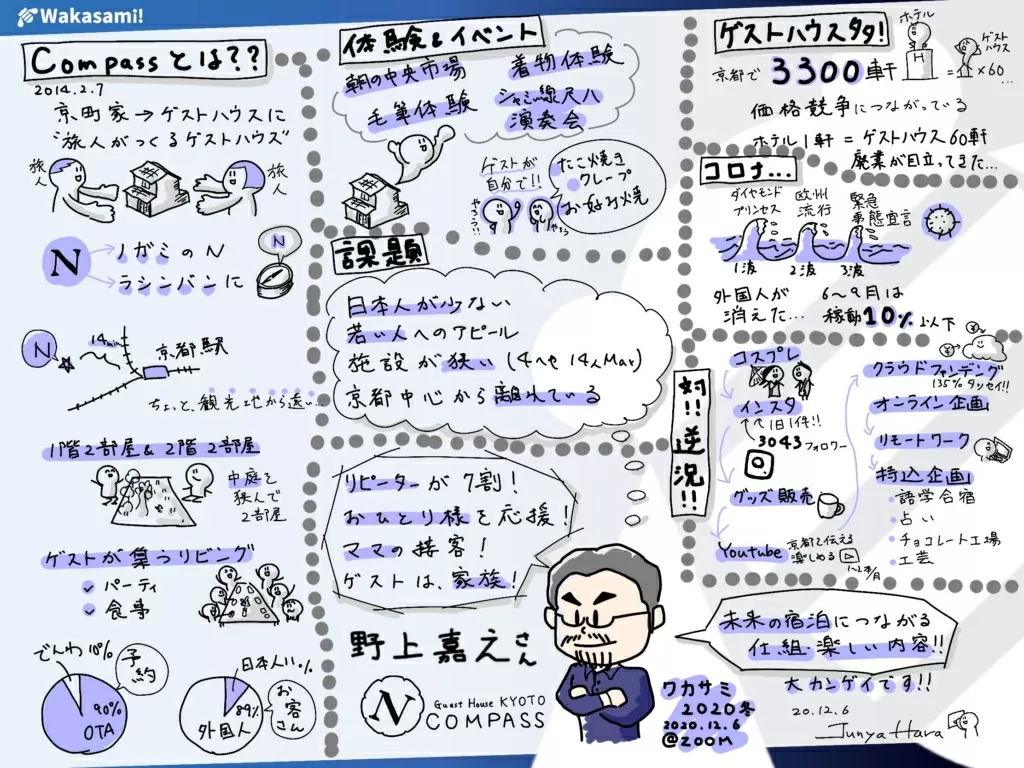 Wakasami!
Compassとは??
2014.2.7
京町家→ゲストハウスに
"旅人がつくるゲストハウス"
旅人
旅人
N→ノガミのN
→ラシンバンに
N
N
14min
京都駅
ちょっと、観光地から遠い...
1階2部屋&2階2部屋
中庭を
挟んで
2部屋
ゲストが集うリビング
パーティ
食事
でんわ10%
予約
90%
OTA
日本人11%
89%
外国人
お客さん
体験&イベント
朝の中央市場
着物体験
毛筆体験
シャミ線尺八
演奏会
ゲストが
自分で!!
やろう?!
やろう
たこ焼き
クレープ
お好み焼
課題
日本人が少ない
若い人へのアピール
施設が狭い(4へや14人Max)
京都中心から離れている
リピーターが7割!
おひとり様を応援!
ママの接客!
ゲストは、家族!
野上嘉えさん
N
Guest House KYOTO
COMPASS
ゲストハウスタタ!
ホテル
H
ゲスト
ハウス
=
×60...
京都で3300軒
価格競争につながっている
ホテル1軒=ゲストハウス60軒
廃業が目立ってきた...
コロナ...
ダイヤモンド
プリンセス
欧州
流行
緊急
事態宣言
1波
2波
3波
外国人が
消えた...
6〜9月は
稼動10%以下
対!!逆況!!
コスプレ
インスタ
1日1件!!
3043フォロワー
グッズ販売
Youtube
京都を伝える
楽しめる
1~2本/月
クラウドファンデング
135%タッセイ!!
オンライン企画
リモートワーク
持込企画
・語学合宿
・占い
・チョコレート工場
・工芸
未来の宿泊につながる
仕組・楽しい内容!!
大カンゲイです!!
ワカサミ
2020冬
2020.12.6
@ZOOM
20.12.6
Junya Hara